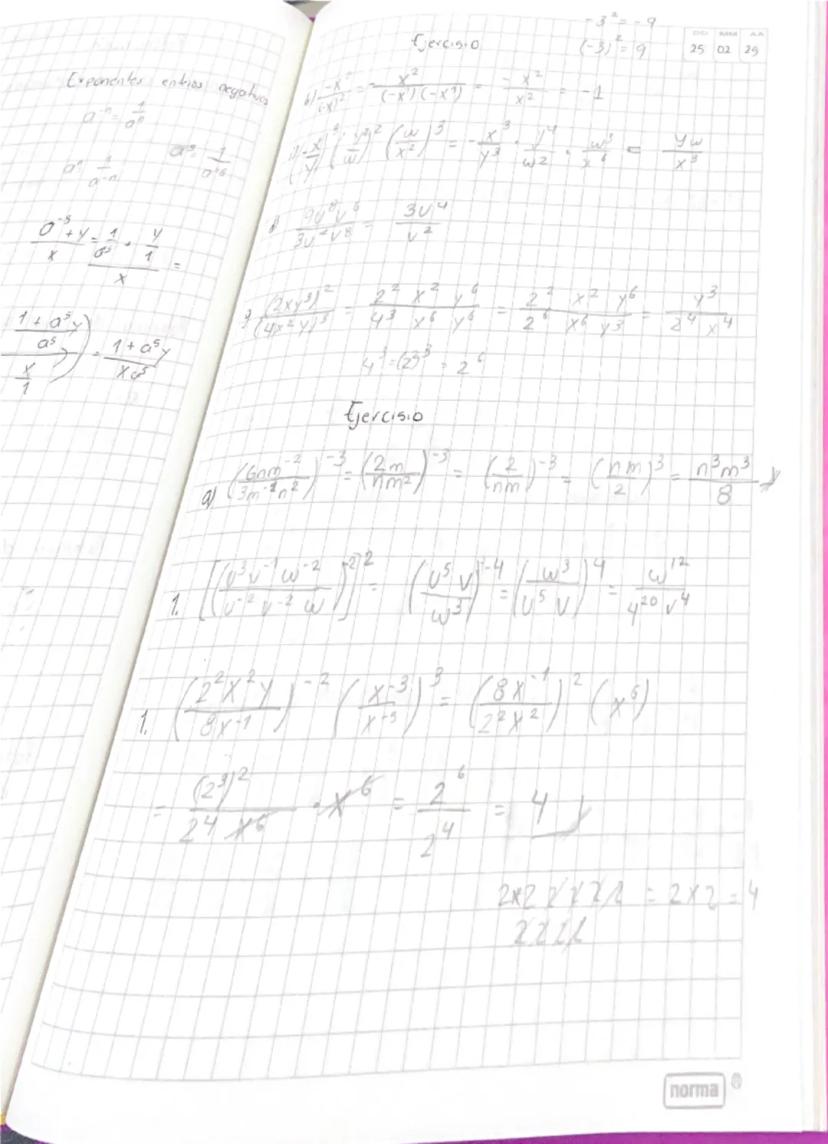 Exponentes enteros negativos
a⁻ⁿ = 1/aⁿ
aⁿ 1/a⁻ⁿ
(a⁻⁵ + y)/x = (1/a⁵ + y/1)/x =
((1 + a⁵y)/a⁵)/(x/1)) = (1 + a⁵y)/(xa⁵)
-3² = -9
Ejercisio (-3)² = 9
DD MM AA
25 02 25
b) -x²/(-x)² = - x²/((-x¹)(-x¹)) = - x²/x² = -1
(w/x²)³ = - x³/y³ · y⁴/w² · w³/x⁶ = yw/x³
= 3u⁴/v²
(2xy³)²/(4x²y)³ = 2² x² y⁶/(4³ x⁶ y⁶) = 2² x² y⁶/(2⁶ x⁶ y³) = y³/(2⁴ x⁴)
4³ = (2²)³ = 2⁶
Ejercisio
a) (6nm⁻²/(3m⁻¹n²))⁻³ = (2m/(nm²))⁻³ = (2/(nm))⁻³ = (nm/2)³ = n³m³/8
1. [(u³v⁻¹w⁻²/(u⁻²v⁻²w))⁻²]² = (u⁵v/w³)⁻⁴ = (w³/(u⁵v))⁴ = w¹²/(u²⁰v⁴)
1. (2²x²y/(8x⁻¹))⁻² (x⁻³/x⁻⁵)³ = (8x⁻¹/(2²x²))² (x⁶)
= (2³)²/(2⁴ x⁶) · x⁶ = 2⁶/2⁴ = 4
2×2 2 2 2 2 = 2×2 = 4
2 2 2 2
norma